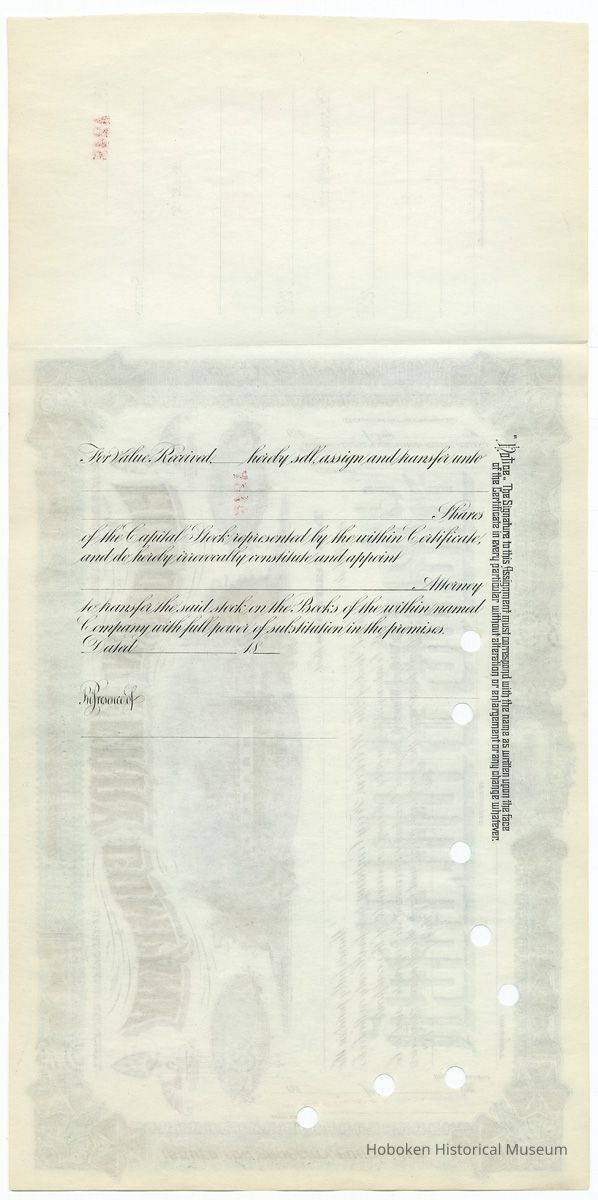 For Value Received, ____ hereby sell, assign and transfer unto
Shares
of the Capital Stock represented by the within Certificate,
and do hereby irrevocably constitute and appoint
Attorney
to transfer the said stock on the Books of the within named
Company with full power of substitution in the premises.
Dated ____ 18__
In Presence of
"Notice." The Signature to this Assignment must correspond with the name as written upon the face
of the Certificate in every particular without alteration or enlargement or any change whatever.
Hoboken Historical Museum